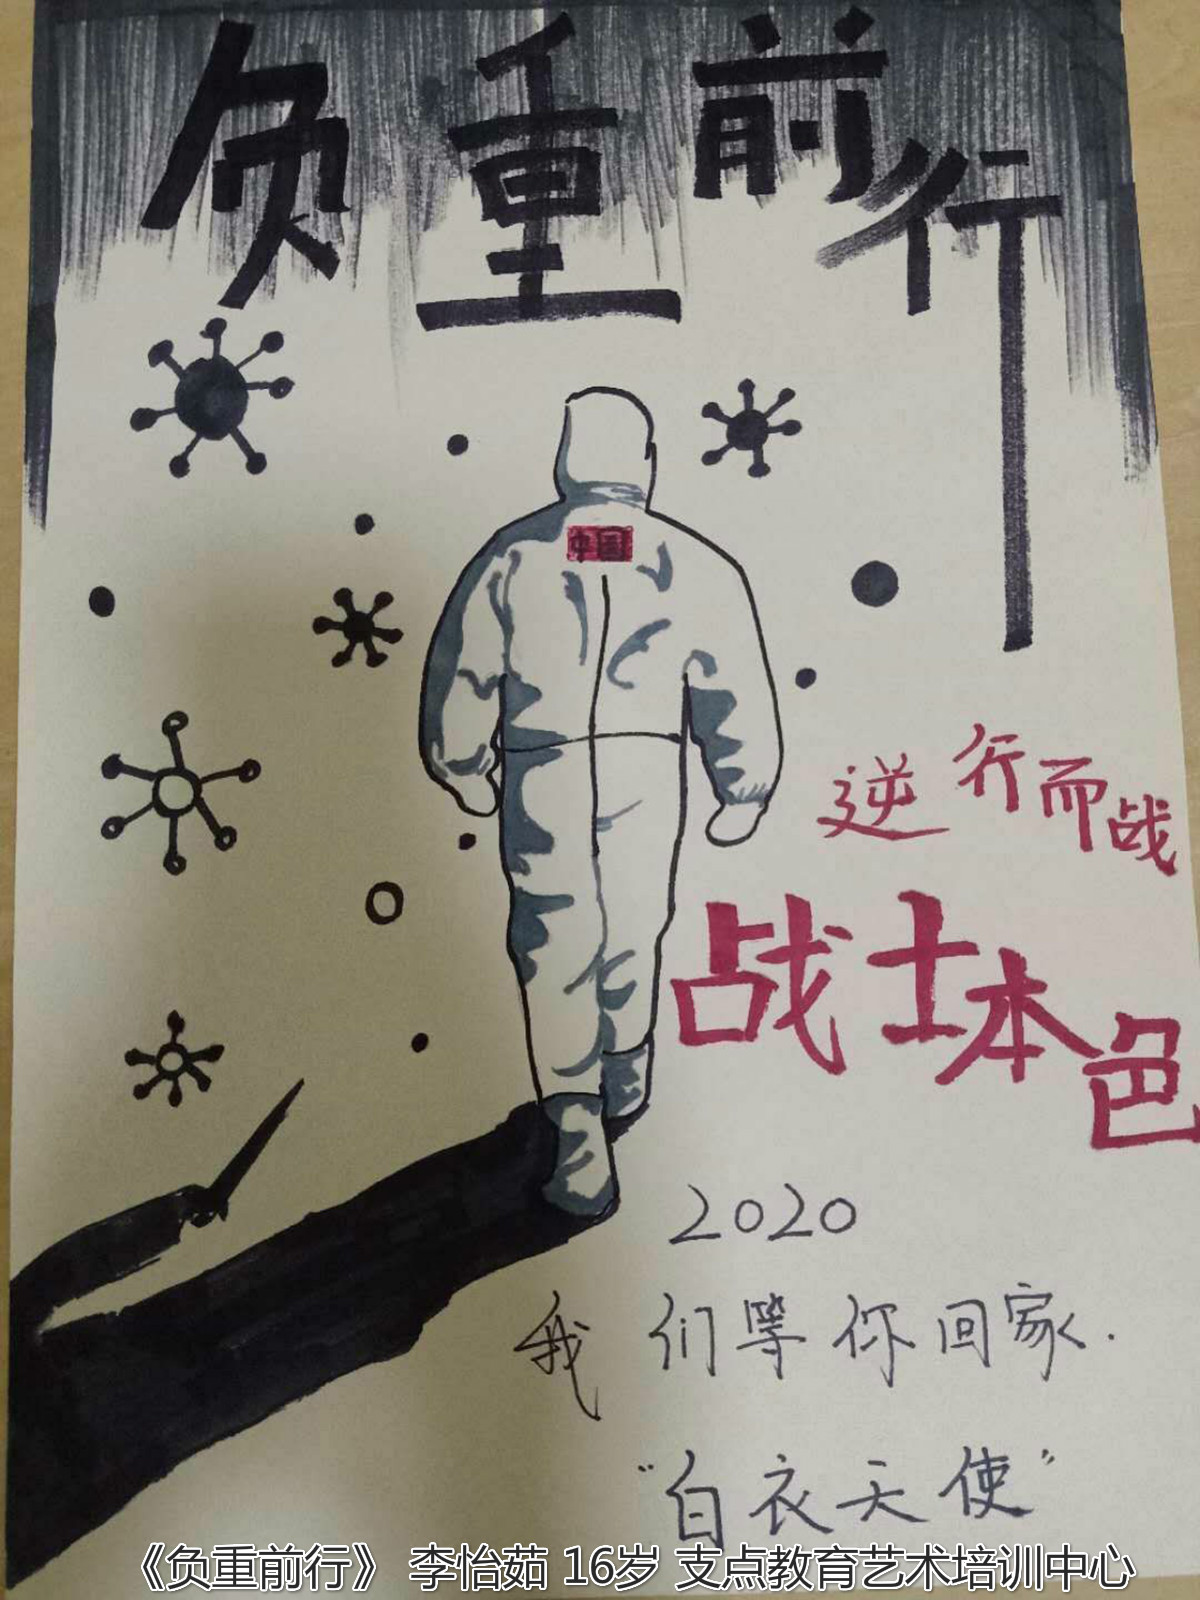 负重前行
中国
逆行而战
战士本色
2020
我们等你回家.
“白衣天使”
《负重前行》 李怡茹 16岁 支点教育艺术培训中心